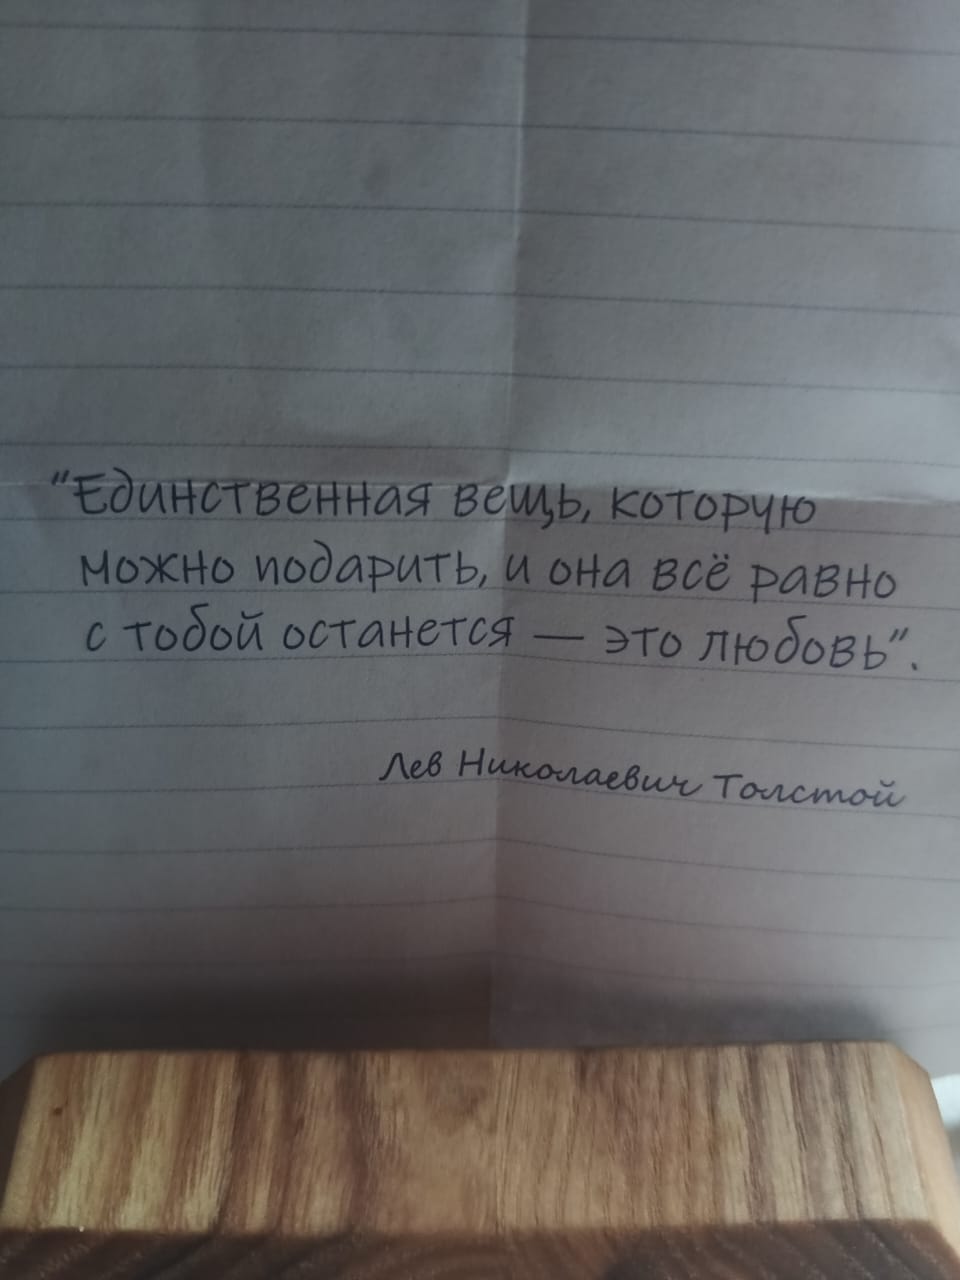 "Единственная вещь, которую
можно подарить, и она всё равно
с тобой останется — это любовь".
Лев Николаевич Толстой